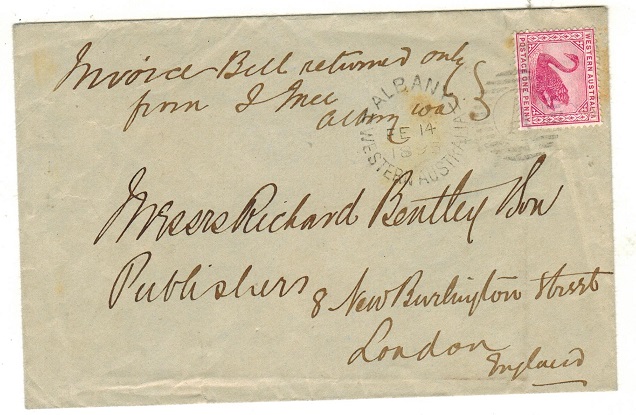 Invoice Bill returned only
from J Mee
Albany WA
ALBANY
FE 14
WESTERN AUSTRALIA
WESTERN AUSTRALIA
POSTAGE ONE PENNY
Messrs Richard Bentley & Son
Publishers 8 New Burlington Street
London
England